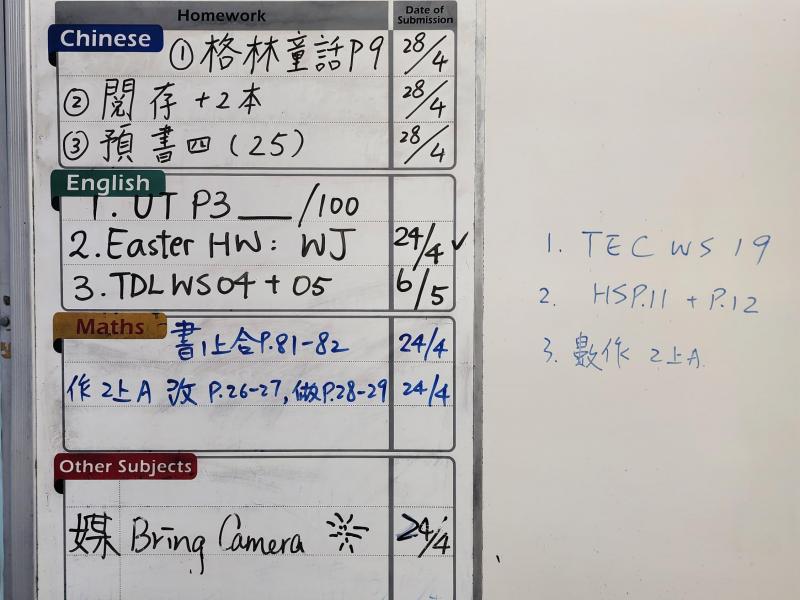 Homework
Date of Submission
Chinese
① 格林童話P9 28/4
② 閱存+2本 28/4
③ 預書四(25) 28/4
English
1. UT P3 ___/100
2. Easter HW: WJ 24/4 ✓
3. TDL WS04 + 05 6/5
Maths
書1上合P.81-82 24/4
作2上A 改 P.26-27, 做P.28-29 24/4
Other Subjects
媒 Bring Camera 24/4
1. TEC WS 19
2. HSP.11 + P.12
3. 數作 2上A.